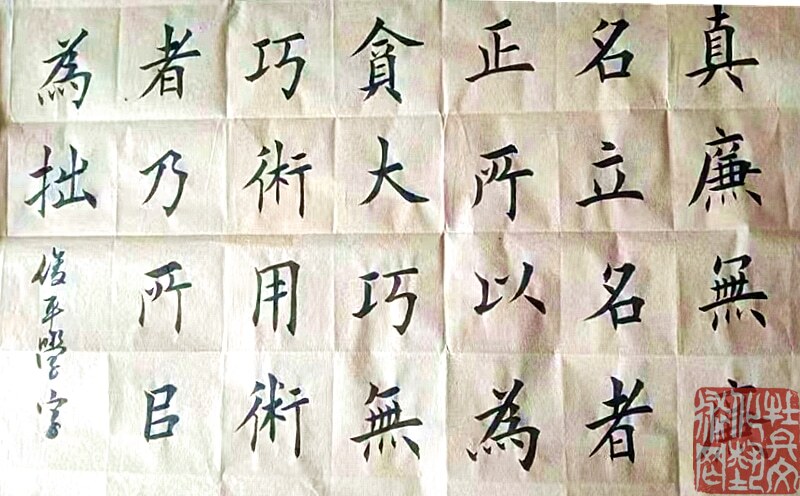 真廉無廉
名立名者
正所以為
貪大巧無
巧術用術
者乃所㠯
為拙
俊平學字